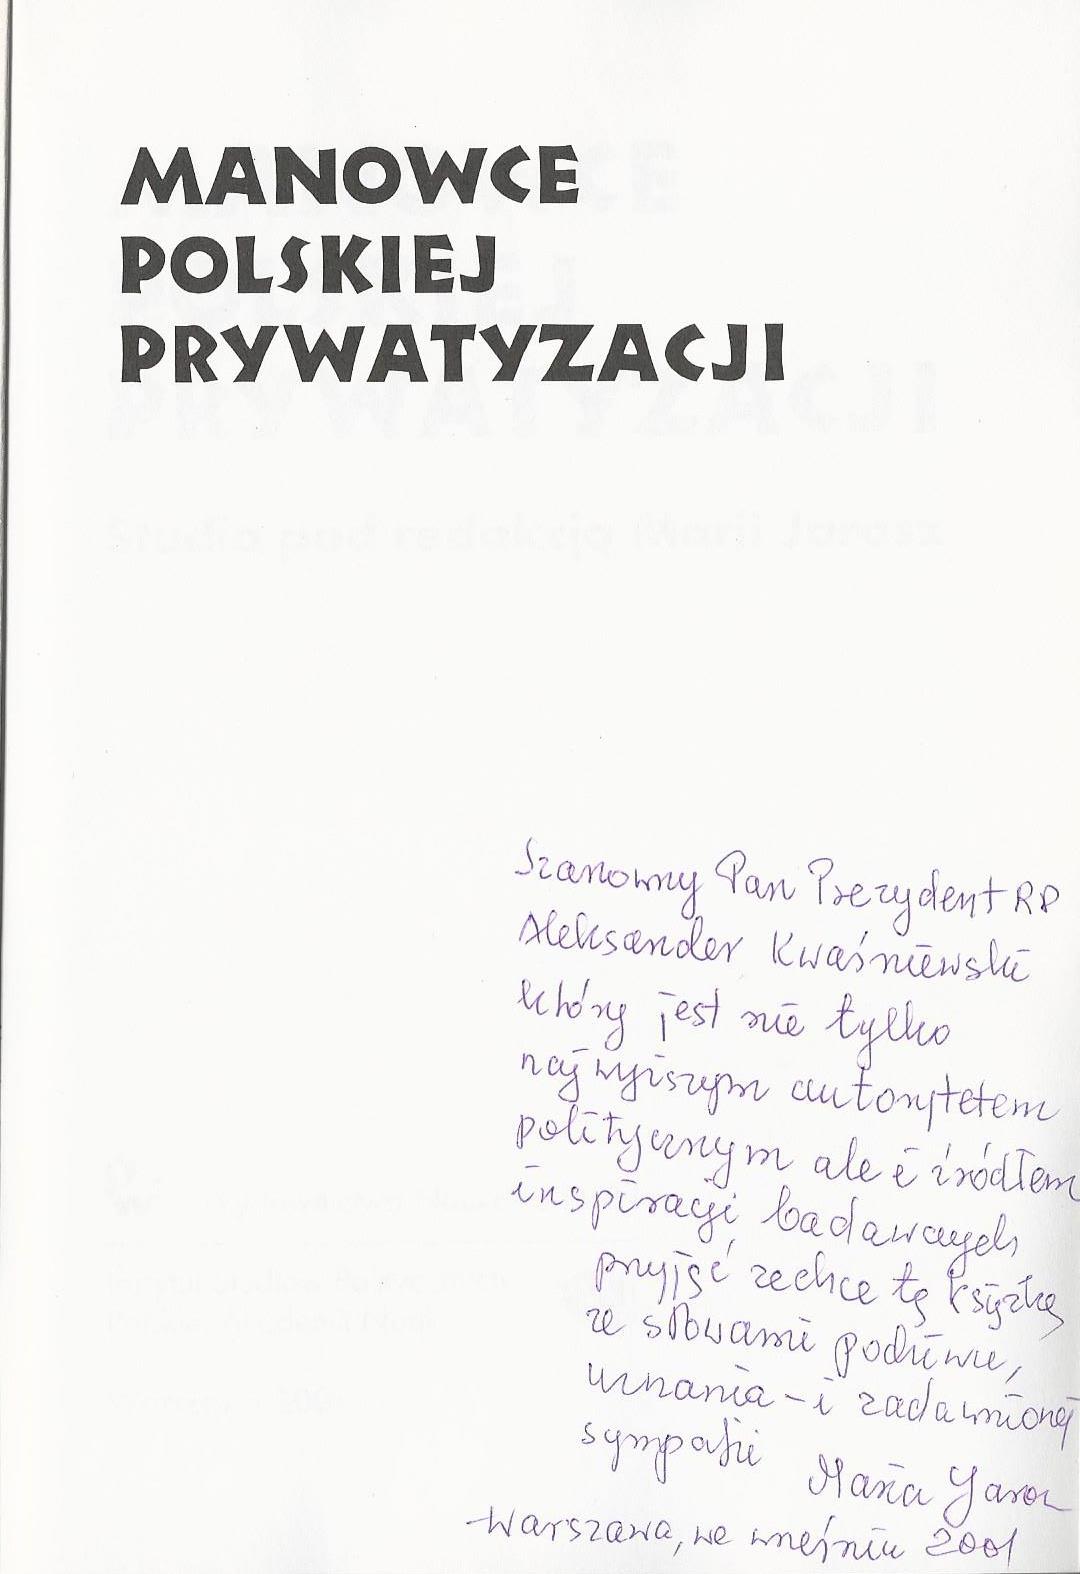 MANOWCE
POLSKIEJ
PRYWATYZACJI
Studia pod redakcją Marii Jarosz
Szanowny Pan Prezydent RP
Aleksander Kwaśniewski
który jest nie tylko
najwyższym autorytetem
politycznym ale i źródłem
inspiracji badawczych
przyjąć zechce tę książkę
ze słowami podziwu,
uznania – i zadawnionej
sympatii
Maria Jarosz
Warszawa, we wrześniu 2001